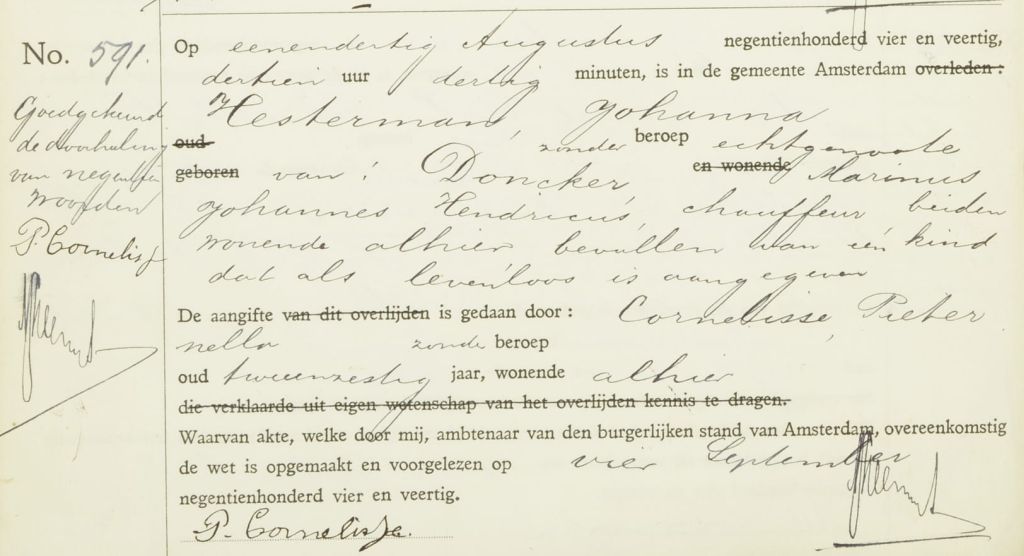 No. 591.
Goedgekeurd
de doorhaling
van negentien
woorden
P. Cornelisse
Op eenendertig Augustus negentienhonderd vier en veertig,
dertien uur dertig minuten, is in de gemeente Amsterdam overleden:
Hesterman, Johanna
oud zonder beroep echtgenoote
geboren van: Doncker en wonende Marinus
Johannes Hendricus, chauffeur beiden
wonende alhier bevallen van één kind
dat als levenloos is aangegeven
De aangifte van dit overlijden is gedaan door: Cornelisse, Pieter
nella zonder beroep
oud tweeenzestig jaar, wonende alhier
die verklaarde uit eigen wetenschap van het overlijden kennis te dragen.
Waarvan akte, welke door mij, ambtenaar van den burgerlijken stand van Amsterdam, overeenkomstig
de wet is opgemaakt en voorgelezen op vier September
negentienhonderd vier en veertig.
P. Cornelisse.